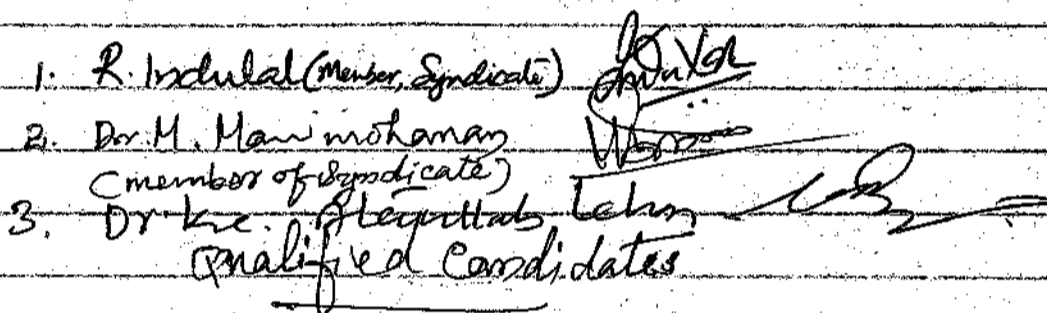 1. R. Indulal (Member, Syndicate)
2. Dr. M. Manimohanan
(member of Syndicate)
3. Dr. K.c.
Qualified Candidates